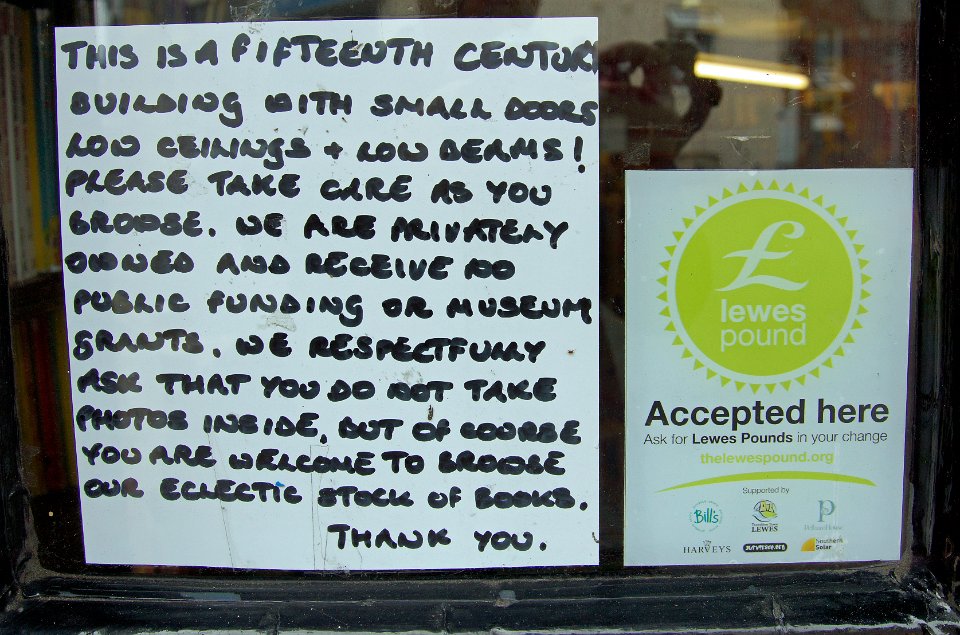 THIS IS A FIFTEENTH CENTURY
BUILDING WITH SMALL DOORS
LOW CEILINGS + LOW BEAMS!
PLEASE TAKE CARE AS YOU
BROWSE. WE ARE PRIVATELY
OWNED AND RECEIVE NO
PUBLIC FUNDING OR MUSEUM
GRANTS. WE RESPECTFULLY
ASK THAT YOU DO NOT TAKE
PHOTOS INSIDE. BUT OF COURSE
YOU ARE WELCOME TO BROWSE
OUR ECLECTIC STOCK OF BOOKS.
THANK YOU.
£
lewes
pound
Accepted here
Ask for Lewes Pounds in your change
thelewespound.org
Supported by
Bill's
LEWES
Pelham House
HARVEYS
Southern
Solar